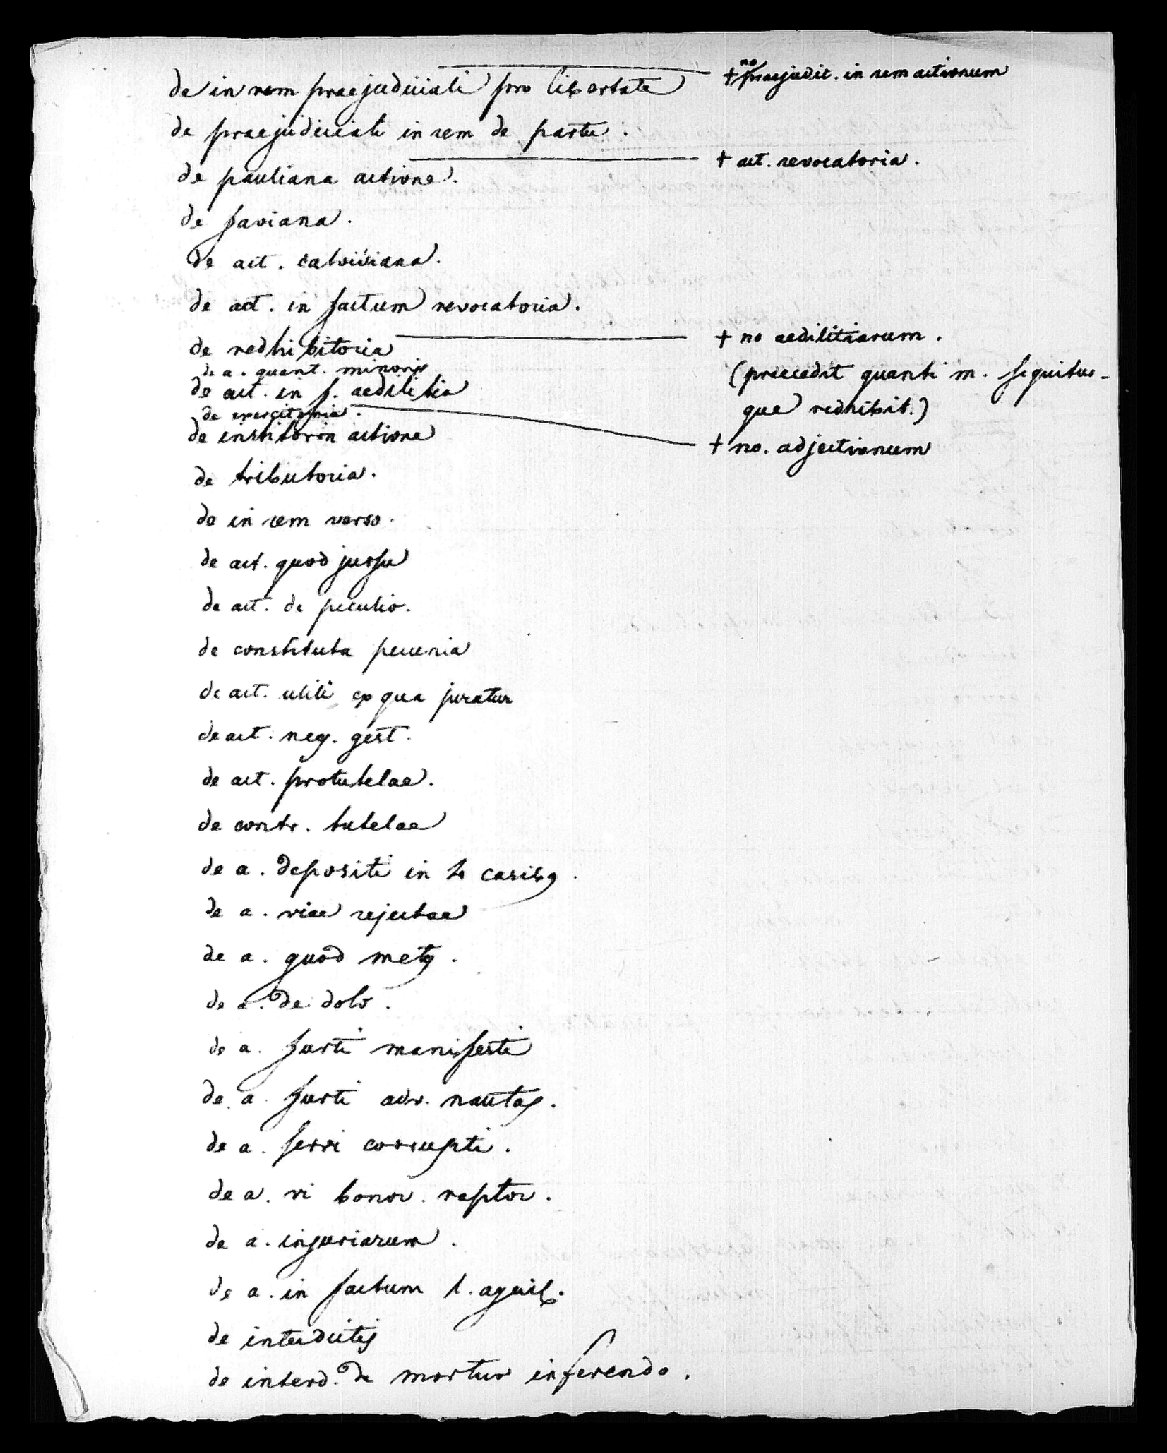 de in rem praejudiciali pro libertate
+ no praejudic. in rem actionum
de praejudiciali in rem de partu.
+ act. revocatoria.
de pauliana actione.
de faviana.
de act. calvisiana.
de act. in factum revocatoria.
+ no aedilitiarum.
de redhibitoria
de a. quant. minoris
(praecedit quanti m. sequitur-
de act. in f. aedilitia
que redhibit.)
de exercitoria.
de institoria actione
+ no. adjectionum
de tributoria.
de in rem verso.
de act. quod jussu
de act. de peculio.
de constituta pecunia
de act. utili ex qua juratur
de act. neg. gest.
de act. protutelae.
de contr. tutelae
de a. depositi in 4 casibꝰ.
de a. viae rejectae
de a. quod metꝰ.
de a. de dolo.
de a. furti manifesti
de a. furti adv. nautas.
de a. servi corrupti.
de a. vi bonor. raptor.
de a. injuriarum.
de a. in factum l. aquil.
de interdictis
de interd. de mortuo inferendo.